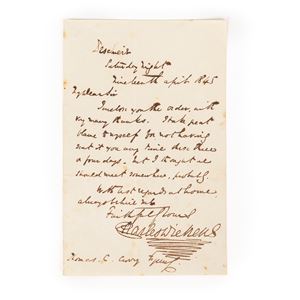 Saturday Night
Nineteenth April 1845
My Dear Sir
I enclose you the order, with
very many thanks. I take great
blame to myself for not having
sent it you any time these three
or four days. But I thought we
should meet somewhere, probably.
With best regards at home
always believe me
Faithfully Yours
Charles Dickens
Thomas